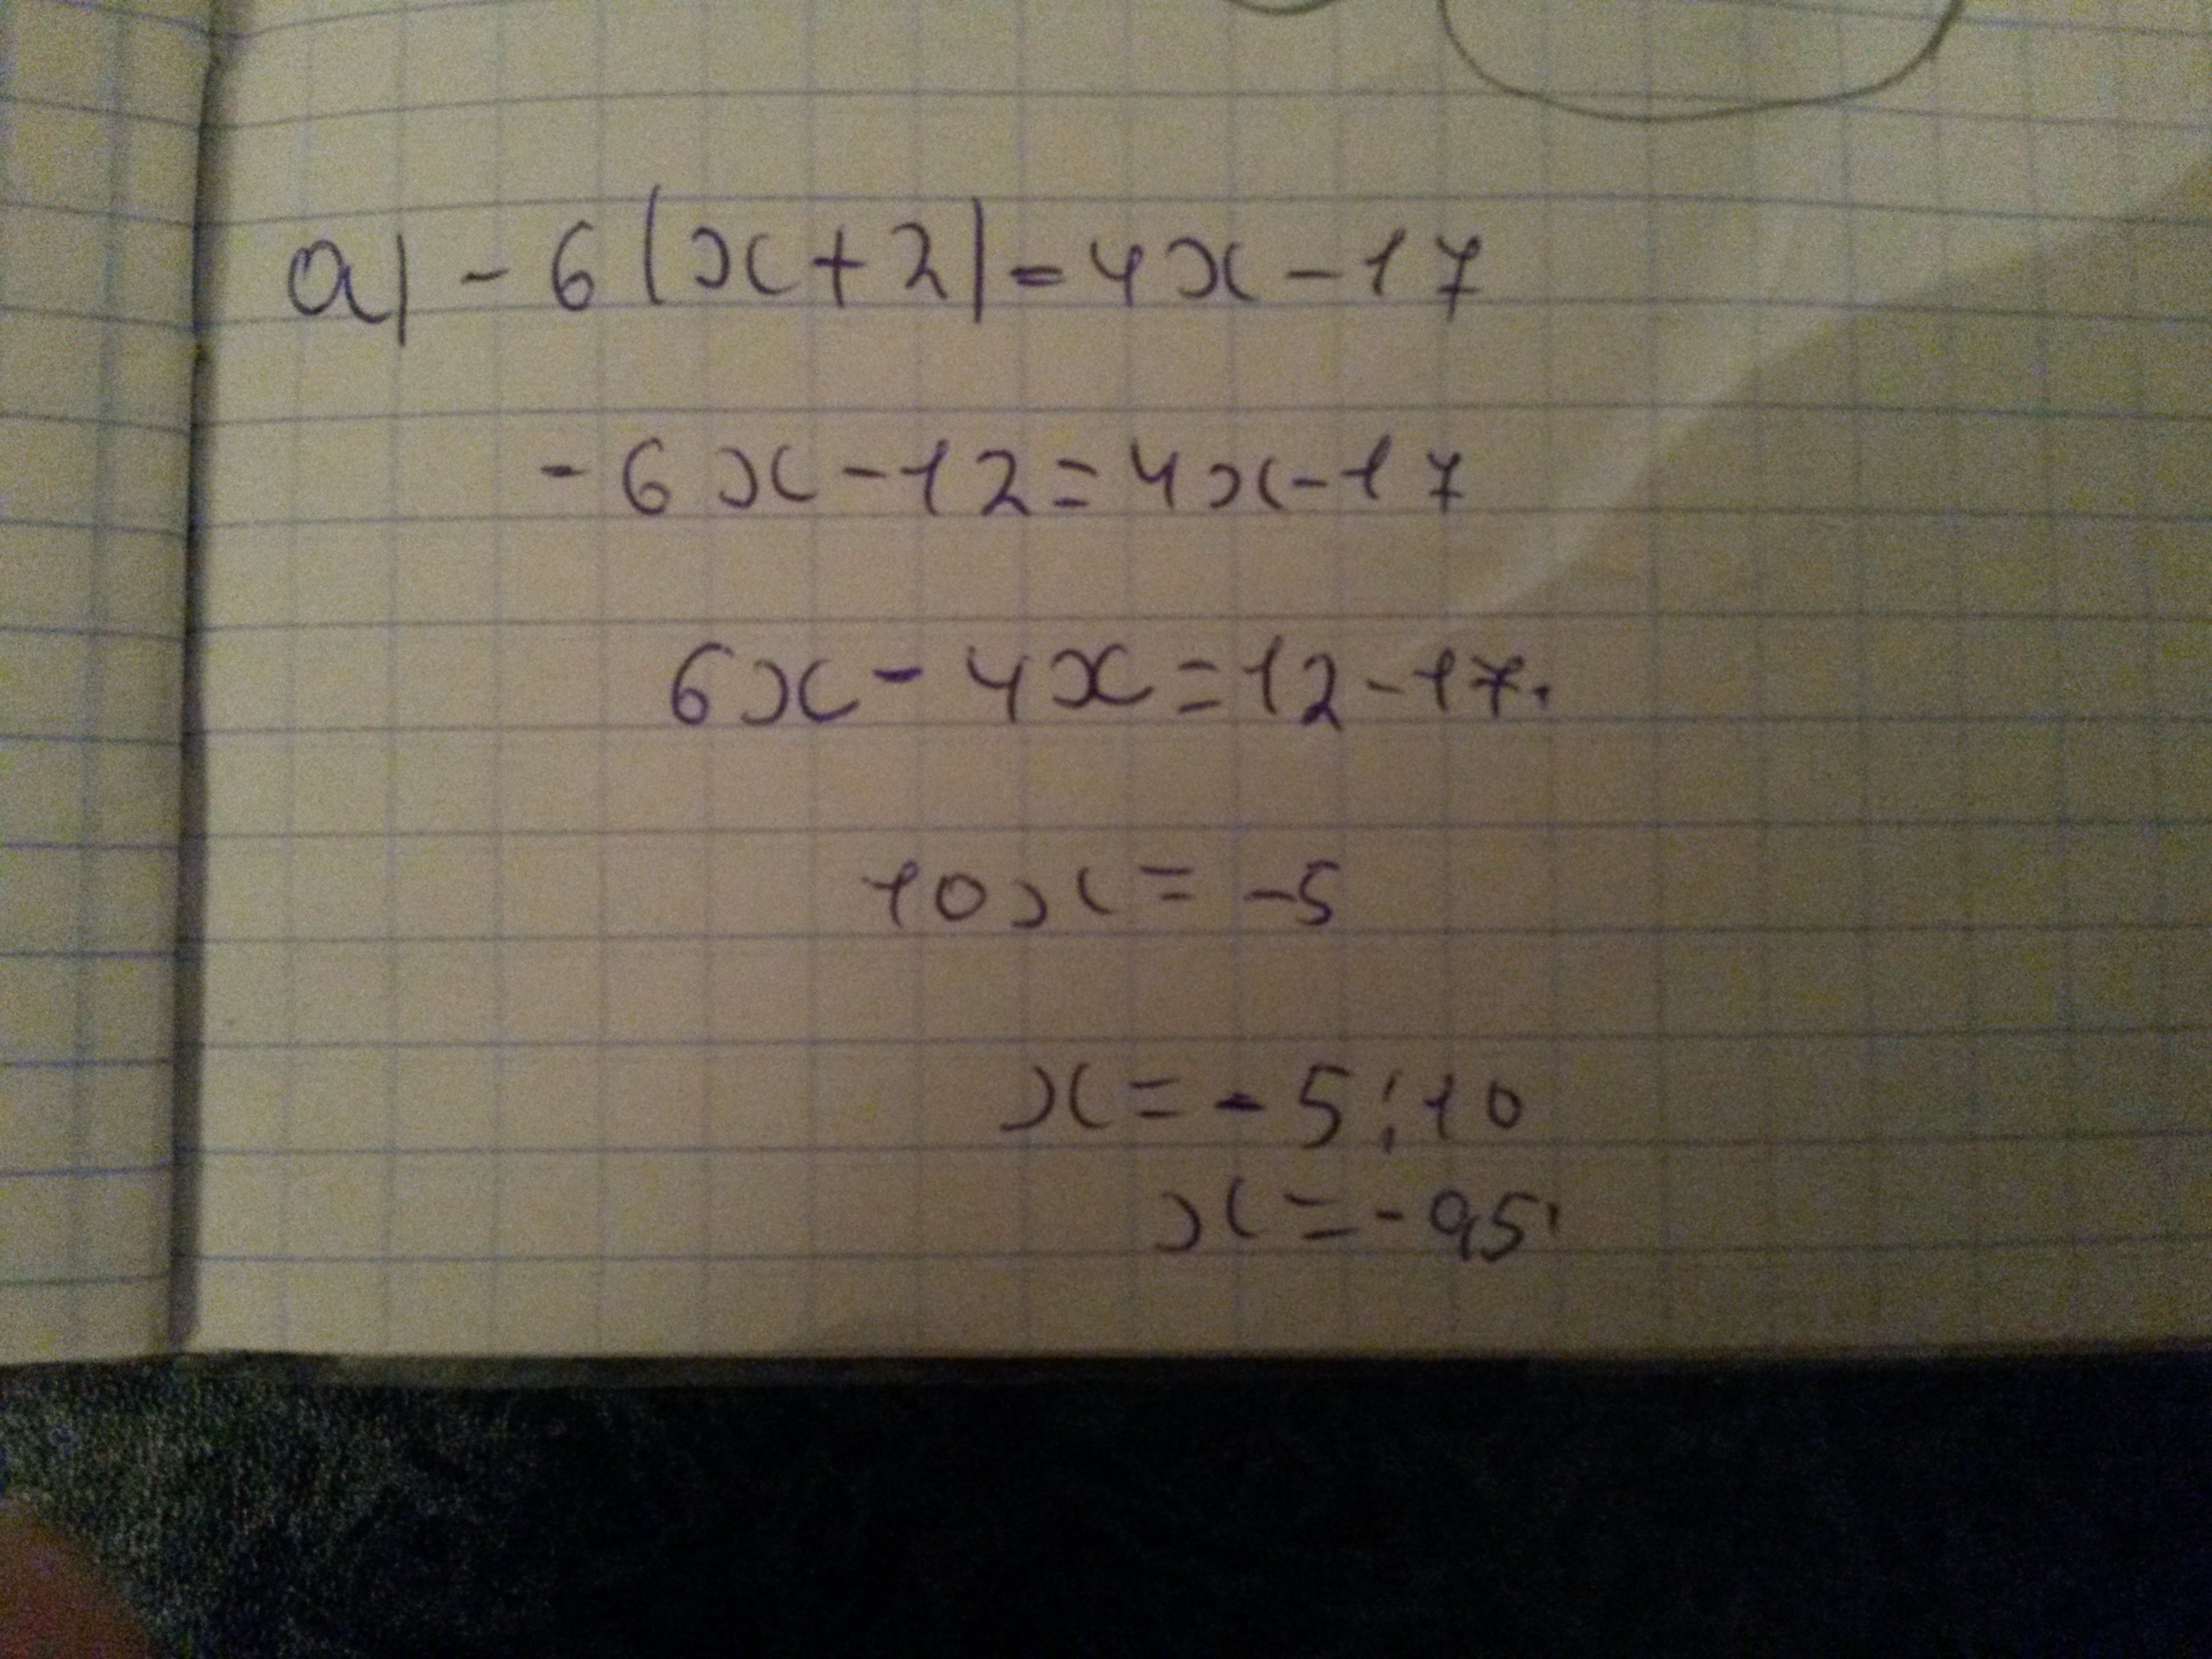 а) - 6 (x + 2) = 4x - 17
- 6x - 12 = 4x - 17
6x - 4x = 12 - 17.
10x = -5
x = - 5 : 10
x = - 0,5.